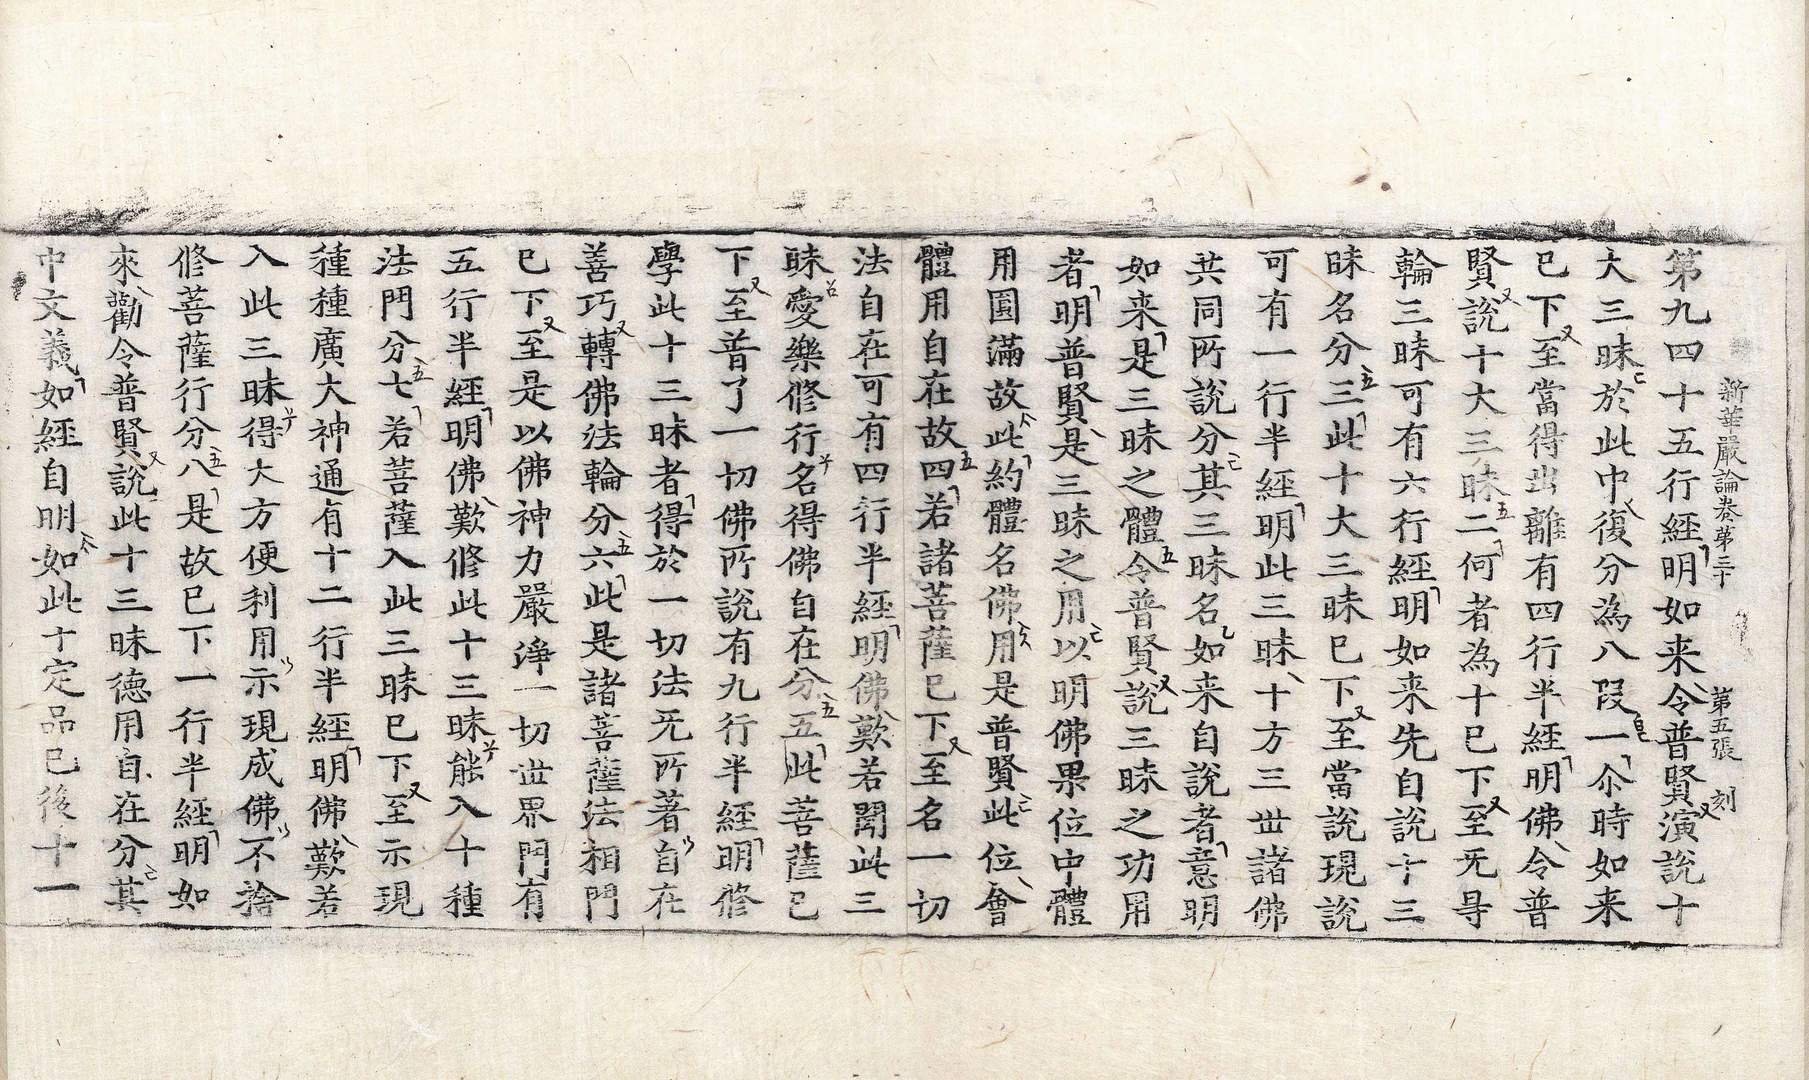 新華嚴論卷第三十　第五張　刻
第九四十五行經明如来令普賢演說十
大三昧於此中復分為八段一尒時如来
已下至當得出離有四行半經明佛令普
賢說十大三昧二何者為十已下至无㝵
輪三昧可有六行經明如来先自說十三
昧名分三此十大三昧已下至當說現說
可有一行半經明此三昧十方三世諸佛
共同所說分其三昧名如来自說者意明
如来是三昧之體令普賢說三昧之功用
者明普賢是三昧之用以明佛果位中體
用圓滿故此約體名佛用是普賢此位會
體用自在故四若諸菩薩已下至名一切
法自在可有四行半經明佛歎若聞此三
昧愛樂修行名得佛自在分五此菩薩已
下至普了一切佛所說有九行半經明修
學此十三昧者得於一切法无所著自在
善巧轉佛法輪分六此是諸菩薩法相門
已下至是以佛神力嚴淨一切世界門有
五行半經明佛歎修此十三昧能入十種
法門分七若菩薩入此三昧已下至示現
種種廣大神通有十二行半經明佛歎若
入此三昧得大方便利用示現成佛不捨
修菩薩行分八是故已下一行半經明如
來勸令普賢說此十三昧德用自在分其
中文義如經自明如此十定品已後十一